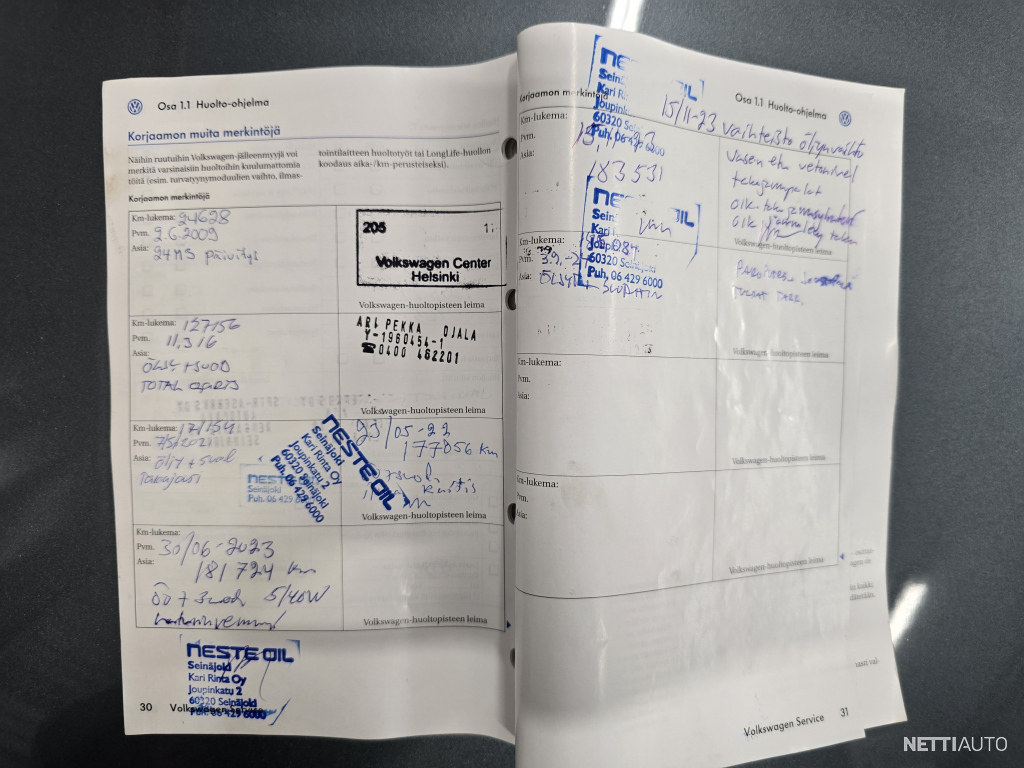 Osa 1.1 Huolto-ohjelma
Korjaamon muita merkintöjä
Näihin ruutuihin Volkswagen-jälleenmyyjä voi
merkitä varsinaisiin huoltoihin kuulumattomia
töitä (esim. turvatyynymoduulien vaihto, ilmas-
tointilaitteen huoltotyöt tai LongLife-huollon
koodaus aika-/km-perusteiseksi).
Korjaamon merkintöjä
Km-lukema: 24628
Pvm. 2.6.2009
Asia: 24MS päivitys
205
Volkswagen Center
Helsinki
Volkswagen-huoltopisteen leima
Km-lukema: 127156
Pvm. 11.3.16
Asia:
ÖLJY + SUOD
TOTAL
ARI PEKKA OJALA
Y-1960454-1
☎0400 462201
Volkswagen-huoltopisteen leima
Km-lukema: 171154
Pvm. 7/5/2021
Asia: öljy + suod
Takajari
NESTE
Seinäjoki
Puh. 06 429 6
NESTE OIL
Seinäjoki
Kari Rinta Oy
Joupinkatu 2
60320 Seinäjoki
Puh. 06 429 6000
23/05-22
177056 km
Volkswagen-huoltopisteen leima
Km-lukema:
Pvm. 30/06-2023
Asia: 181724 km
öö + suod 5/40W
Volkswagen-huoltopisteen leima
NESTE OIL
Seinäjoki
Kari Rinta Oy
Joupinkatu 2
60320 Seinäjoki
Puh. 06 429 6000
30 Volkswagen Service
Osa 1.1 Huolto-ohjelma
Korjaamon merkintöjä
NESTE OIL
Sein
Kari R
Joupink
60320 S
Puh. 06 429 6000
15/11-23 vaihteisto öljynvaihto
Km-lukema:
Pvm.
Asia:
183531
km
Vasen etu vetonivel
takajampalat
Volkswagen-huoltopisteen leima
NESTE OIL
Sein
Kari
Joupi
60320 Seinäjoki
Puh. 06 429 6000
Km-lukema:
Pvm. 3.9.-24
Asia: ÖLJYT + SUODATIN
Volkswagen-huoltopisteen leima
Km-lukema:
Pvm.
Asia:
Volkswagen-huoltopisteen leima
Km-lukema:
Pvm.
Asia:
Volkswagen-huoltopisteen leima
Volkswagen Service 31
NETTIAUTO